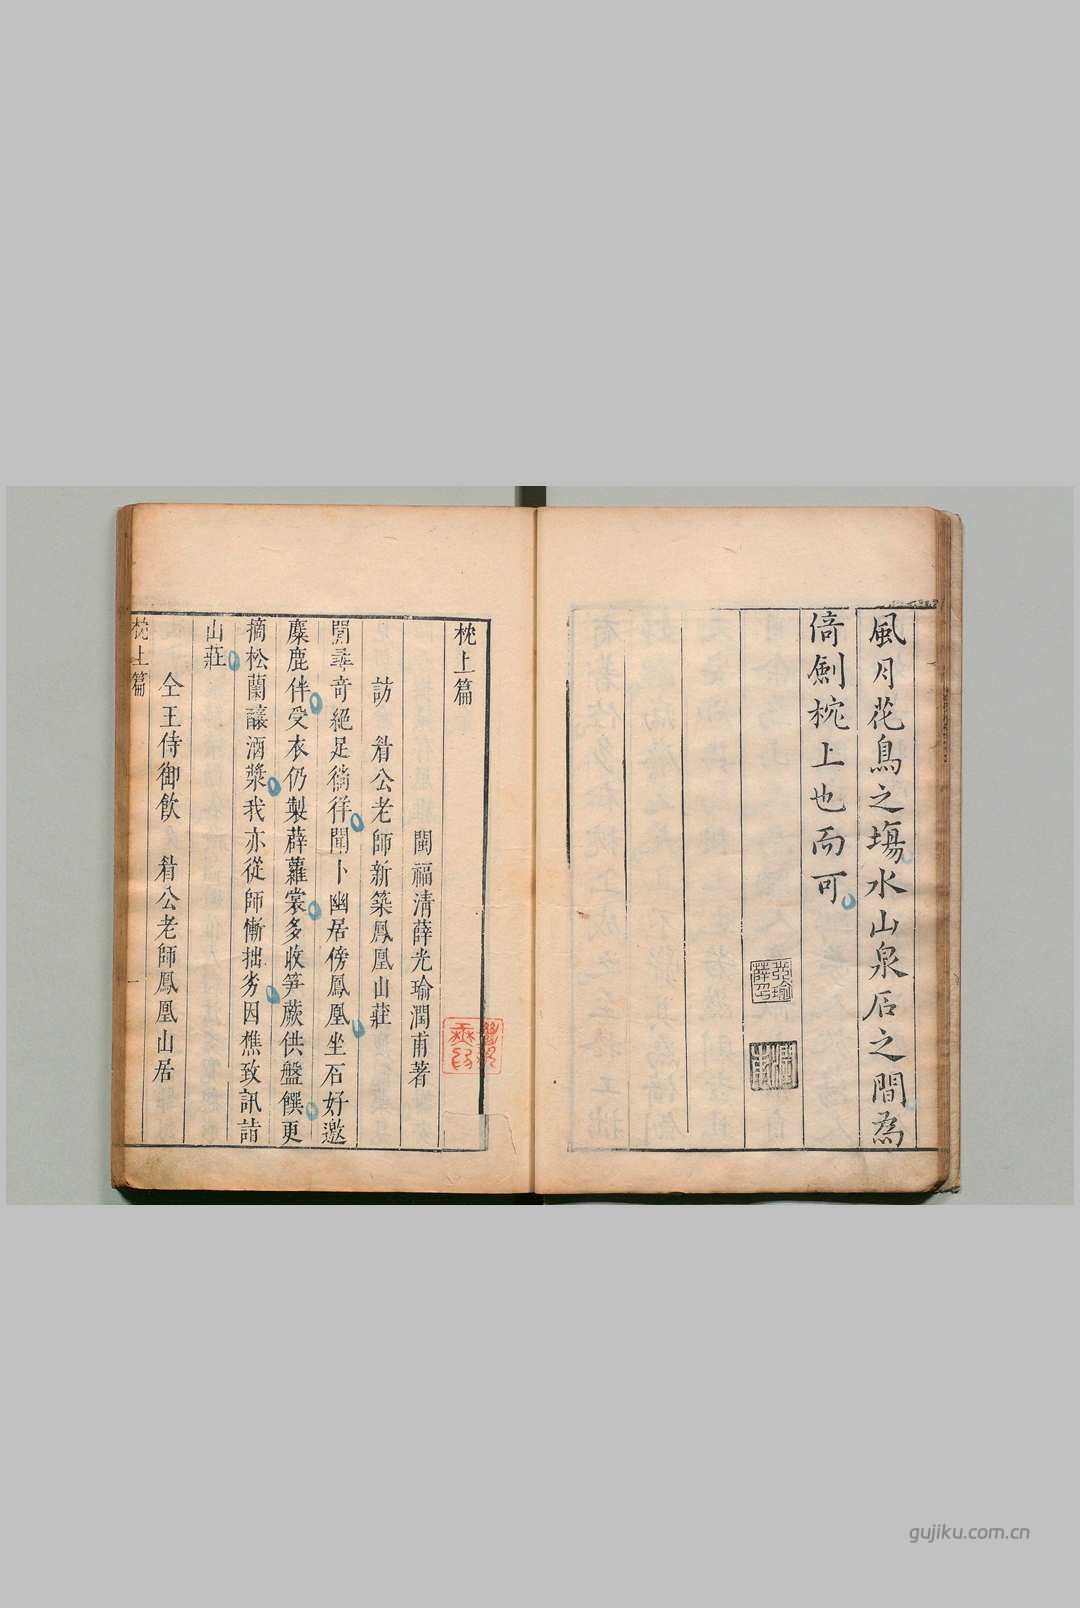 風月花鳥之塲水山泉石之間為
倚劍枕上也而可
薛印
亞瑜
潤甫
枕上篇
閩福清薛光瑜潤甫著
訪　眷公老師新築鳳凰山莊
閒尋奇絕足徜徉聞卜幽居傍鳳凰坐石好邀
麋鹿伴受衣仍製薜蘿裳多收笋蕨供盤饌更
摘松蘭釀酒漿我亦從師慚拙劣因樵致訊詰
山莊
仝王侍御飲　眷公老師鳳凰山居
枕上篇
gujiku.com.cn